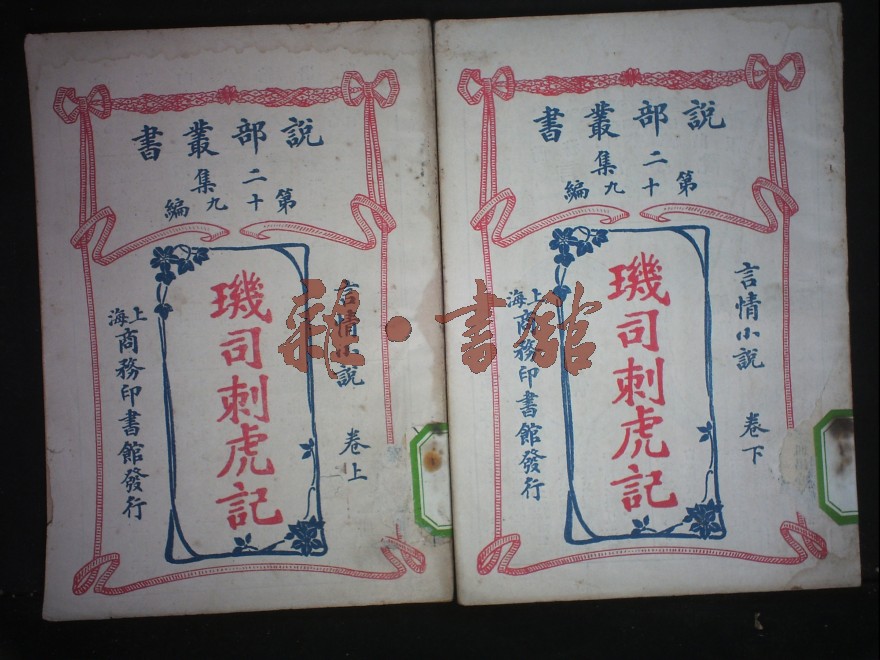 說部叢書
第二集十九編
言情小說 卷上
璣司刺虎記
上海商務印書館發行
說部叢書
第二集十九編
言情小說 卷下
璣司刺虎記
上海商務印書館發行
雜·書館